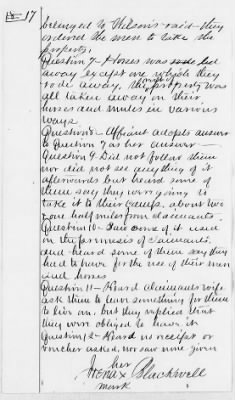 17
belonged to Wilson's raid - they
ordered the men to take the
property.
Question 7 - Horses was led
away except one which they
rode away, the property was
all taken away on their
horses and mules in various
ways.
Question 8 - Affiant adopts answer
to Question 7 as her answer -
Question 9 Did not follow them
nor did not see anything of it
afterwards but heard some of
them say they were going to
take it to their camp, about two
& one half miles from claimants.
Question 10 - Saw some of it used
on the premises of claimants
and heard some of them say they
had to have for the use of their men
and horses
Question 11 - Heard claimants wife
ask them to leave something for them
to live on, but they replied that
they were obliged to have it
Question 12 - Heard no receipt or
voucher asked, nor saw none given
her
x Blackwell
mark